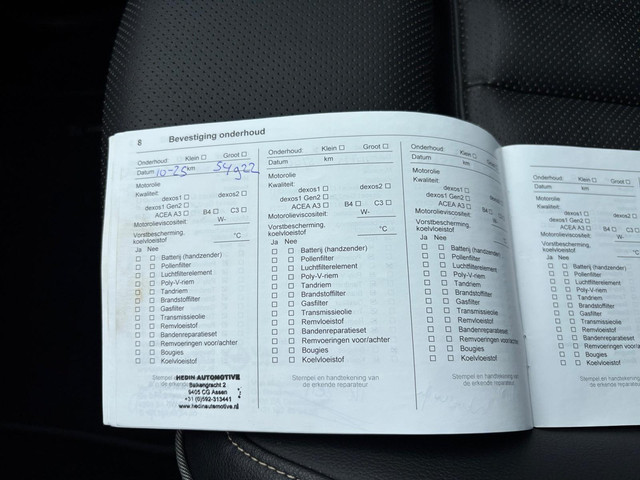 8 Bevestiging onderhoud
Onderhoud: Klein ☐ Groot ☐
Datum 10-25 km 54922
Motorolie
Kwaliteit:
dexos1 ☐ dexos2 ☐
dexos1 Gen2 ☐
ACEA A3 ☐ B4 ☐ C3 ☐
Motorolieviscositeit: W-
Vorstbescherming,
koelvloeistof °C
Ja Nee
☐ ☐ Batterij (handzender)
☐ ☐ Pollenfilter
☐ ☐ Luchtfilterelement
☐ ☐ Poly-V-riem
☐ ☐ Tandriem
☐ ☐ Brandstoffilter
☐ ☐ Gasfilter
☐ ☐ Transmissieolie
☐ ☐ Remvloeistof
☐ ☐ Bandenreparatieset
☐ ☐ Remvoeringen voor/achter
☐ ☐ Bougies
☐ ☐ Koelvloeistof
HEDIN AUTOMOTIVE
Balkengracht 2
9405 CG Assen
+31 (0)592-313441
www.hedinautomotive.nl
Onderhoud: Klein ☐ Groot ☐
Datum km
Motorolie
Kwaliteit:
dexos1 ☐ dexos2 ☐
dexos1 Gen2 ☐
ACEA A3 ☐ B4 ☐ C3 ☐
Motorolieviscositeit: W-
Vorstbescherming,
koelvloeistof °C
Ja Nee
☐ ☐ Batterij (handzender)
☐ ☐ Pollenfilter
☐ ☐ Luchtfilterelement
☐ ☐ Poly-V-riem
☐ ☐ Tandriem
☐ ☐ Brandstoffilter
☐ ☐ Gasfilter
☐ ☐ Transmissieolie
☐ ☐ Remvloeistof
☐ ☐ Bandenreparatieset
☐ ☐ Remvoeringen voor/achter
☐ ☐ Bougies
☐ ☐ Koelvloeistof
Stempel en handtekening van
de erkende reparateur.
Onderhoud: Klein ☐ Groot
Datum km
Motorolie
Kwaliteit:
dexos1 ☐
dexos1 Gen2 ☐
ACEA A3 ☐ B4
Motorolieviscositeit:
Vorstbescherming,
koelvloeistof
Ja Nee
☐ ☐ Batterij (handzender)
☐ ☐ Pollenfilter
☐ ☐ Luchtfilterelement
☐ ☐ Poly-V-riem
☐ ☐ Tandriem
☐ ☐ Brandstoffilter
☐ ☐ Gasfilter
☐ ☐ Transmissieolie
☐ ☐ Remvloeistof
☐ ☐ Bandenreparatieset
☐ ☐ Remvoeringen voor/achter
☐ ☐ Bougies
☐ ☐ Koelvloeistof
Stempel en handtekening van
de erkende reparateur.
Onderhoud: Klein ☐
Datum km
Motorolie
Kwaliteit:
dexos1 ☐
dexos1 Gen2 ☐
ACEA A3 ☐
Motorolieviscositeit:
Vorstbescherming,
koelvloeistof
Ja Nee
☐ ☐ Batterij (handzender)
☐ ☐ Pollenfilter
☐ ☐ Luchtfilterelement
☐ ☐ Poly-V-riem
☐ ☐ Tandriem
☐ ☐ Brandstoffilter
☐ ☐ Gasfilter
☐ ☐ Transmissieolie
☐ ☐ Remvloeistof
☐ ☐ Bandenreparatieset
☐ ☐ Remvoeringen voor/achter
☐ ☐ Bougies
☐ ☐ Koelvloeistof